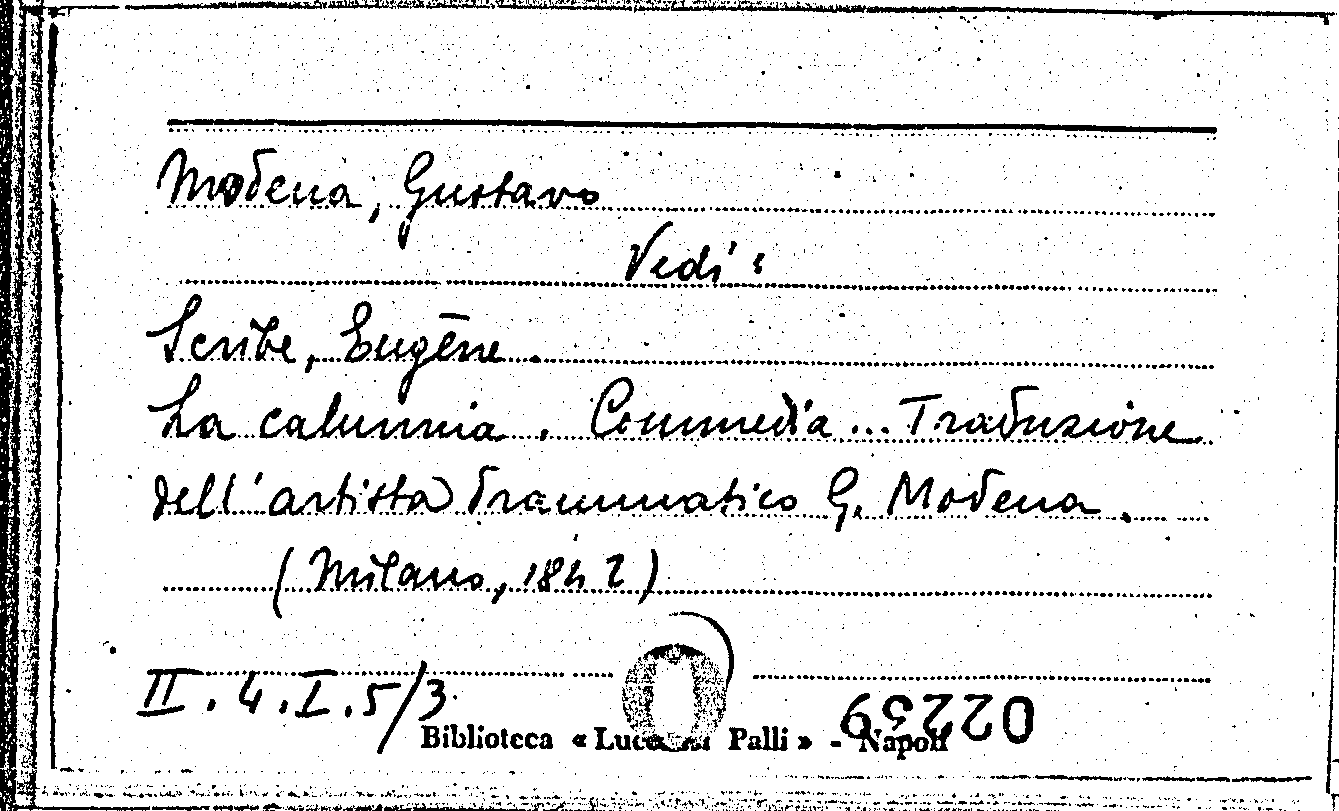 Modena, Gustavo
Vedi:
Scribe, Eugène.
La calunnia. Commedia... Traduzione
dell'artista drammatico G. Modena.
(Milano, 1842)
II.4.I.5/3
02239
Biblioteca « Palli » - Napoli